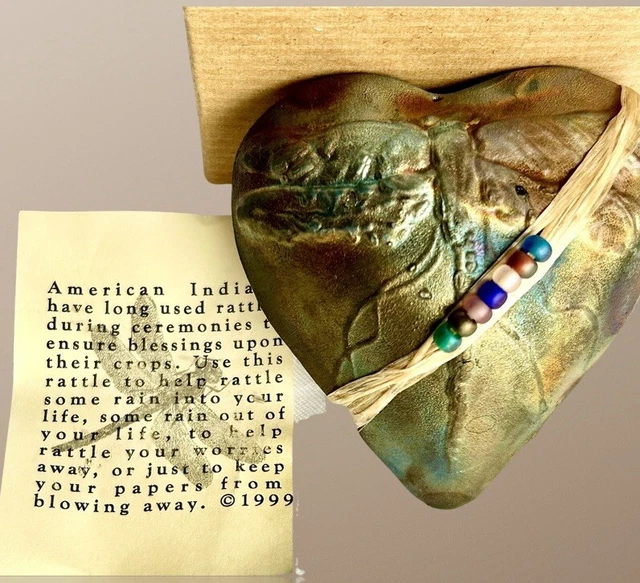 American India
have long used rattl
during ceremonies t
ensure blessings upon
their crops. Use this
rattle to help rattle
some rain into your
life, some rain out of
your life, to help
rattle your worries
away, or just to keep
your papers from
blowing away. ©1999